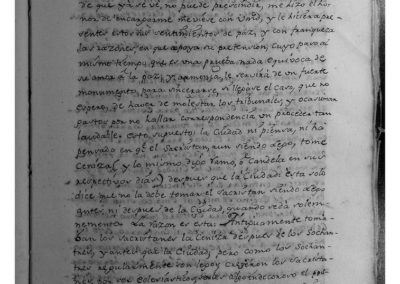 de que ya se ve, no puede prevencia, me hizo el ho-
nor de encargarme me viese con Vmd, y le hiciera pre-
sentes estos sus sentimientos de paz, y con franqueza
las razones en que apoya su pretension, cuyo paso al
mismo tiempo, que es una prueba nada equivoca de
se ama la paz, y armonia, le servirá de un fuerte
monumento, para sincerarse, si llegase el caso, que no
espero, de haver de molestar los tribunales, y ocasionar
gastos por no hallar correspondencia un proceder tan
laudable: esto supuesto la Ciudad ni piensa, ni há
pensado en q.e el Sacristan, aun siendo lego, tome
Ceniza (y lo mismo digo Ramo, ó Candela en sus
respectivos dias) despues que la Ciudad: esta solo
dice que no la debe tomar el Sacristan siendo lego
ante, ni despues de la Ciudad, quando se dá solem-
nemente. La razon es esta: Antiguamente toma-
ban los sacristanes la Ceniza despues de los Sochan-
tres, y antes que la Ciudad, pero como los Sochan-
tres regularmente son legos, exigieron los sacrista-
nes